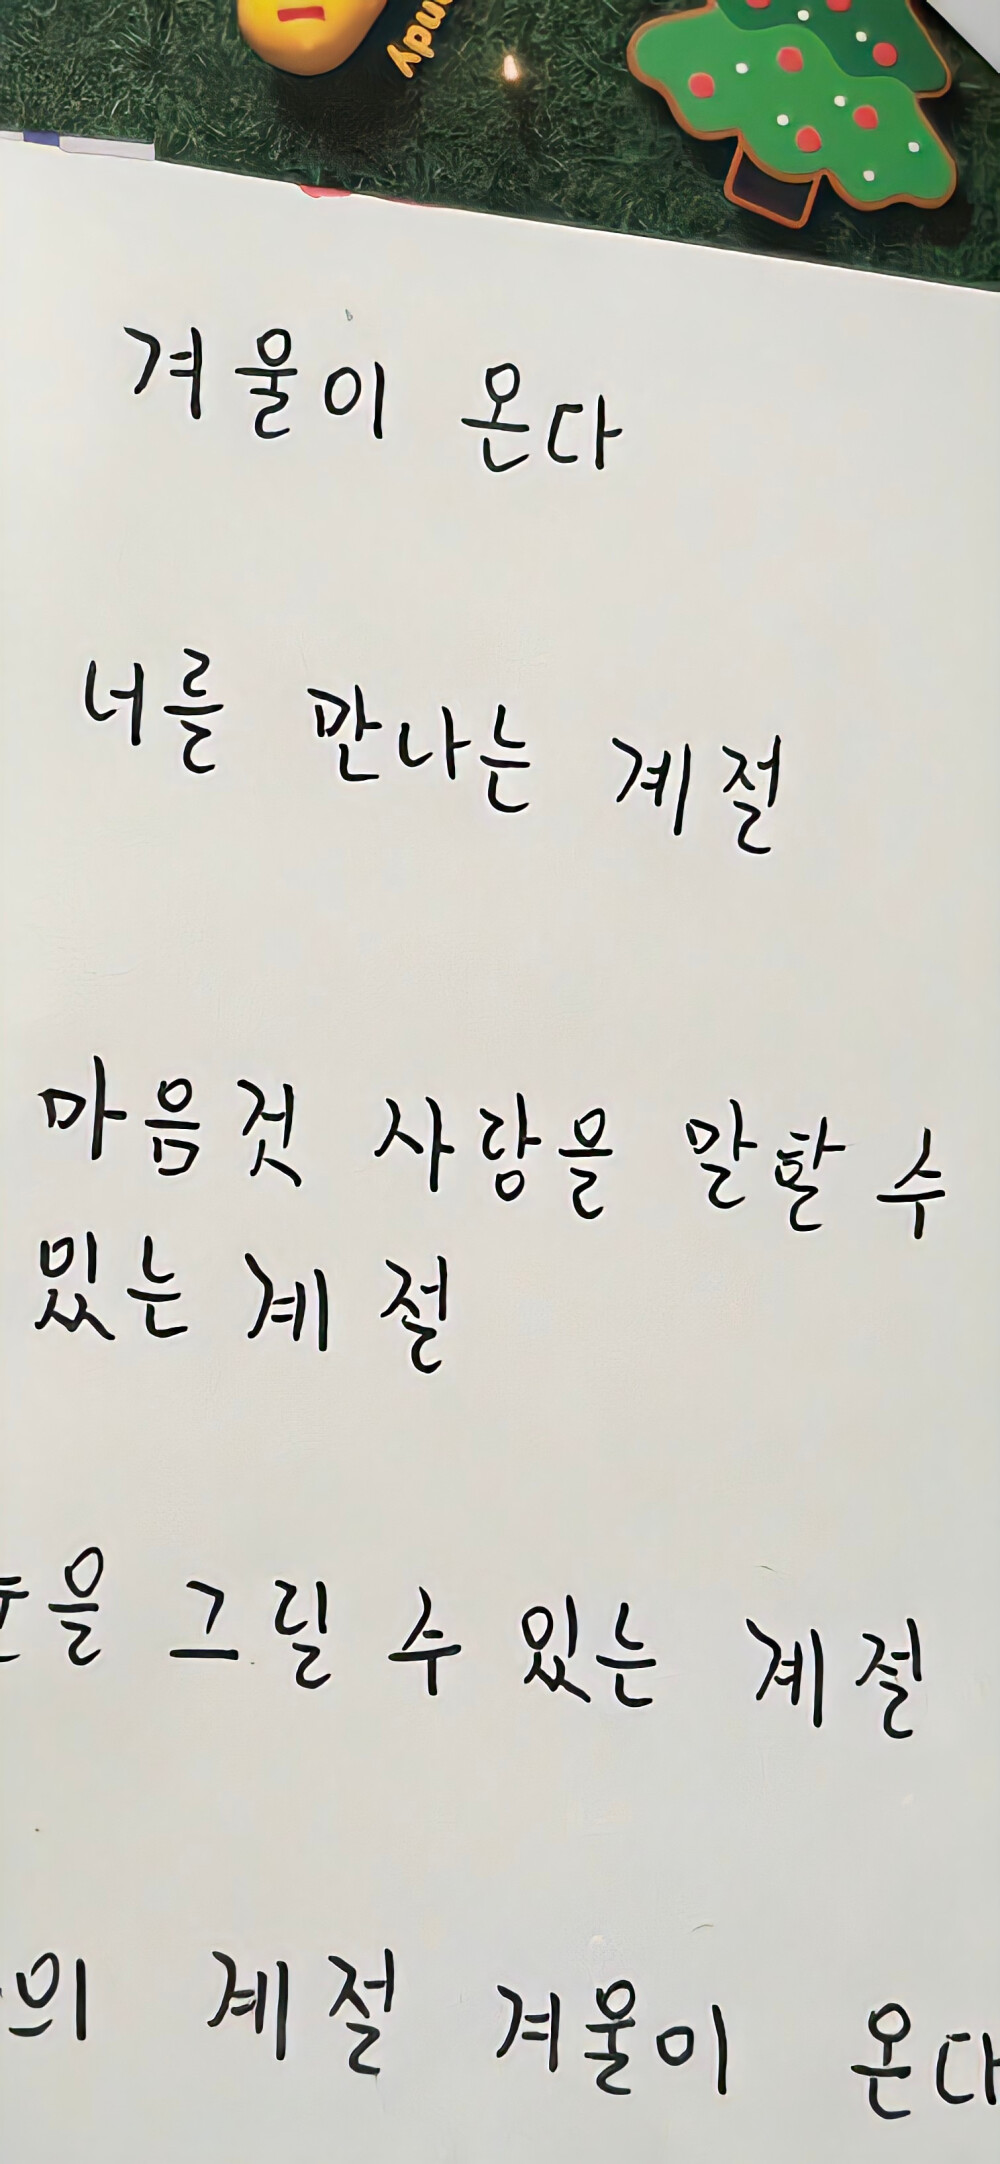 겨울이 온다
너를 만나는 계절
마음껏 사랑을 말할 수
있는 계절
을 그릴 수 있는 계절
의 계절 겨울이 온다